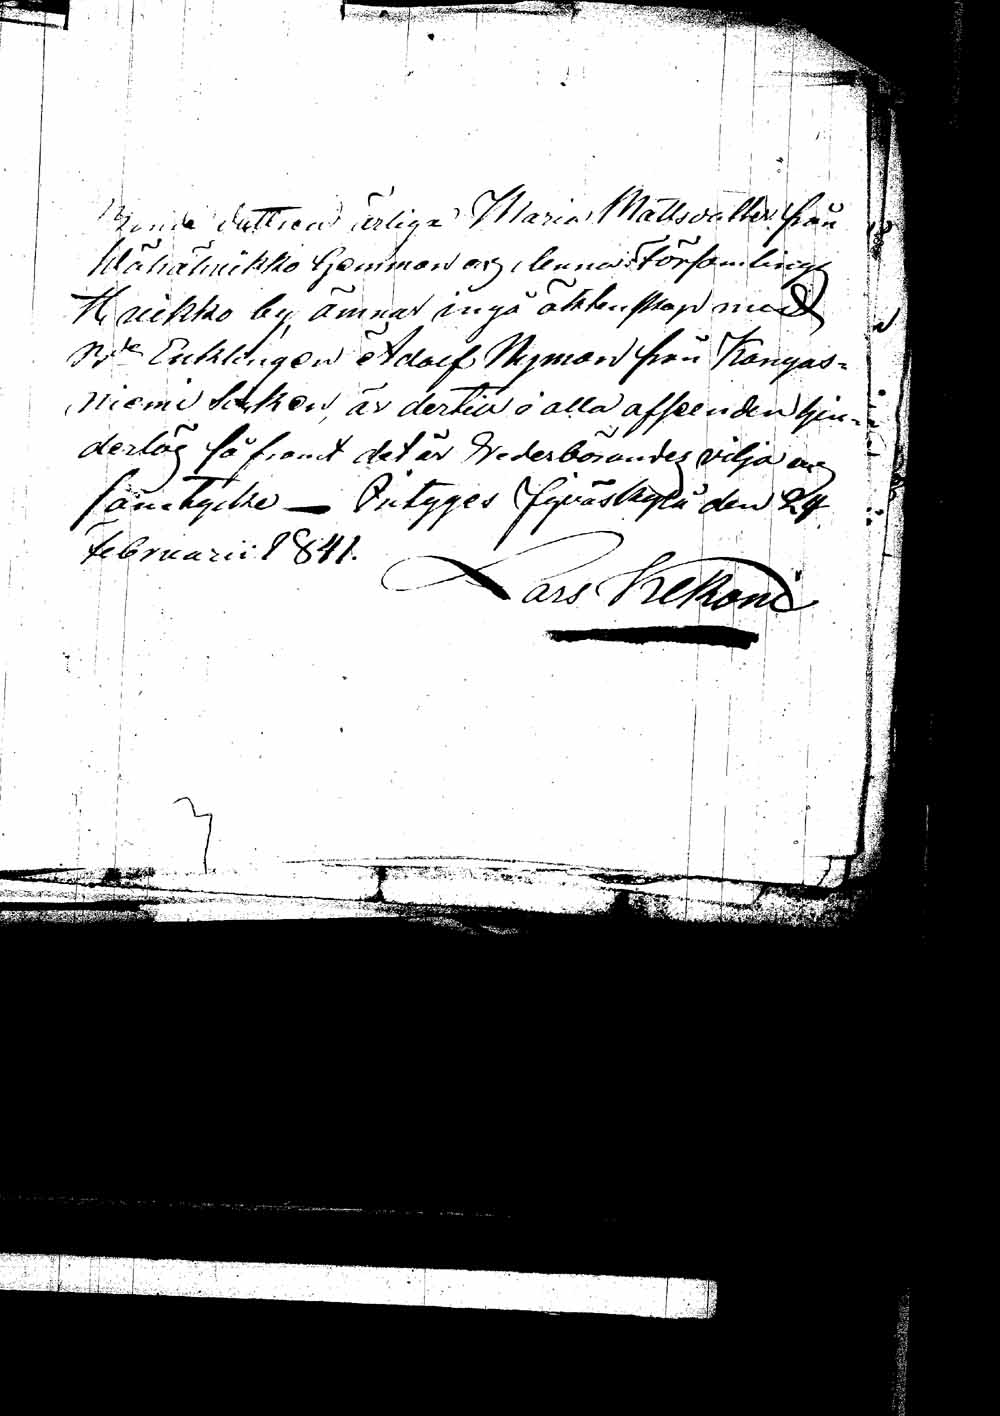 Bonde dottren ärliga Maria Mattsdotter från
Wähähriikko hemman og denna Församlings
Kriikko by, ämnar ingå äktenskap med
Enklingen Adolf Nyman från Kangas-
niemi Socken, är dertill i alla afseenden hin-
derlös så framt det är Wederbörandes vilja og
samtycke — Intyges Jyväskylä den 24
Februarii 1841.
Lars Kekoni